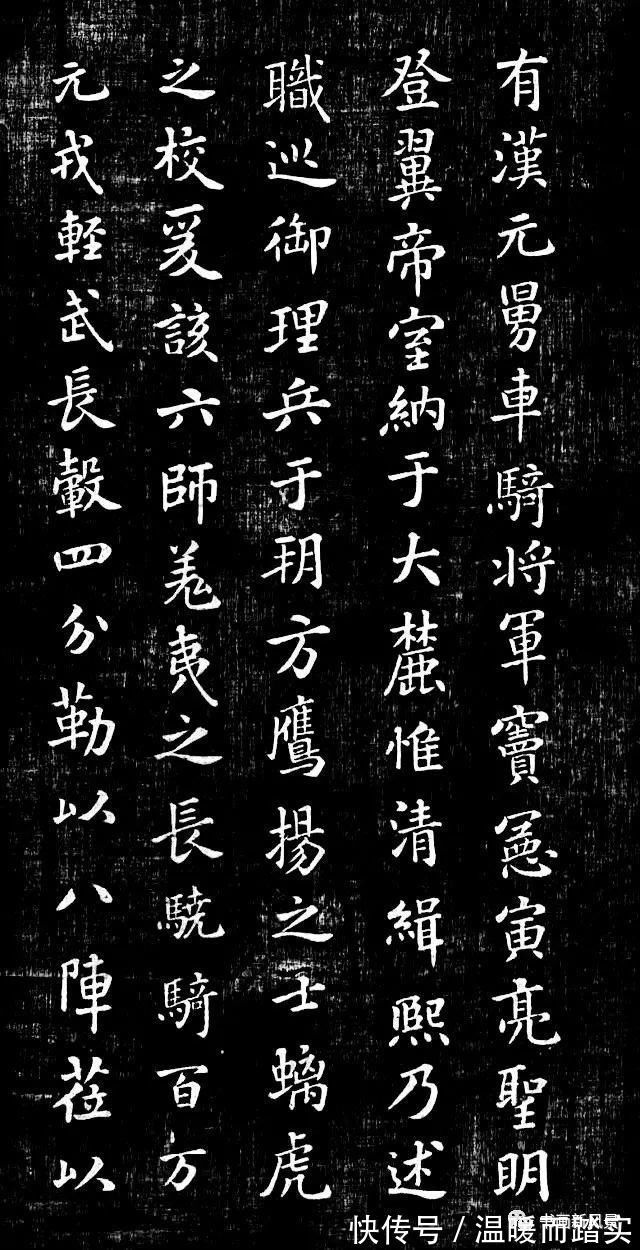 有漢元舅車騎将軍竇憲寅亮聖明
登翼帝室納于大麓惟清緝熙乃述
職巡御理兵于玥方鷹揚之士螭虎
之校爰該六師羌夷之長驍騎百万
元戎輕武長轂四分勒以八陣莅以
书画新风景
快传号 / 温暖而踏实